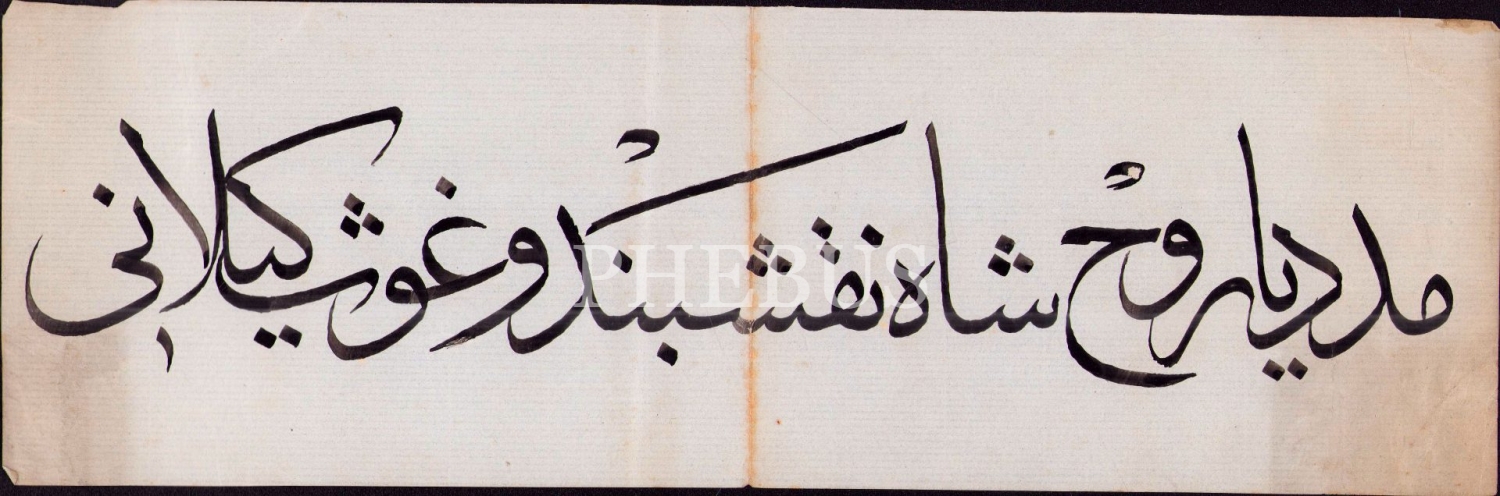 مدد یا روح شاه نقشبند و غوث کیلانی
PHEBUS